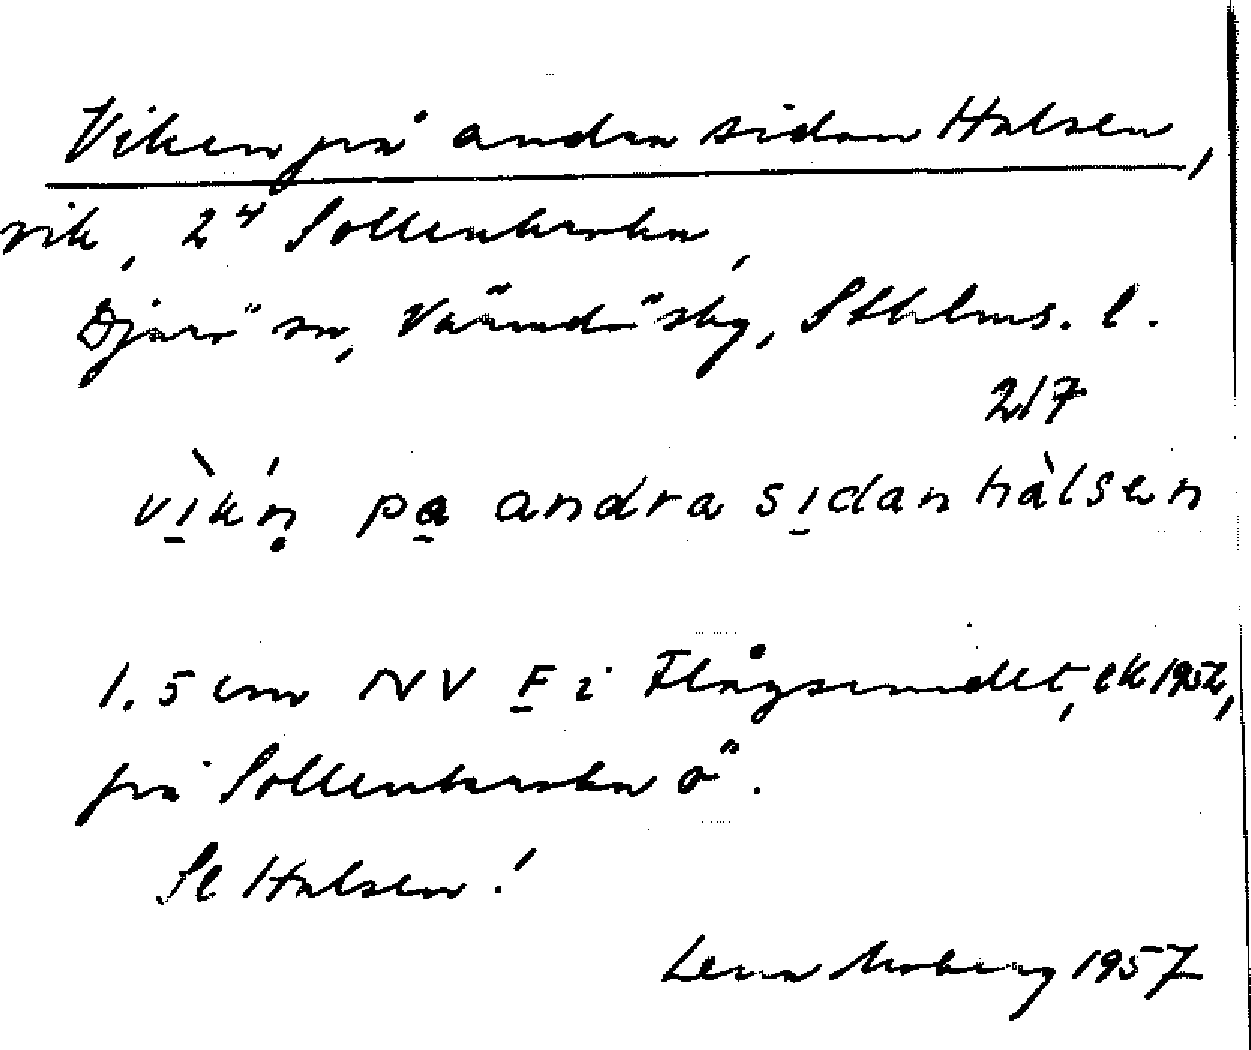 Viken på andra sidan Halsen,
vik, 2⁴ Sollenkroka,
Djurö sn, Värmdö skg, Sthlms. l.
217
vìkń̥ pa andra sidan hàlsen
1.5 cm NV F i Flågsundet, ek 1952,
på Sollenkroka ö.
Se Halsen!
Lena Moberg 1957